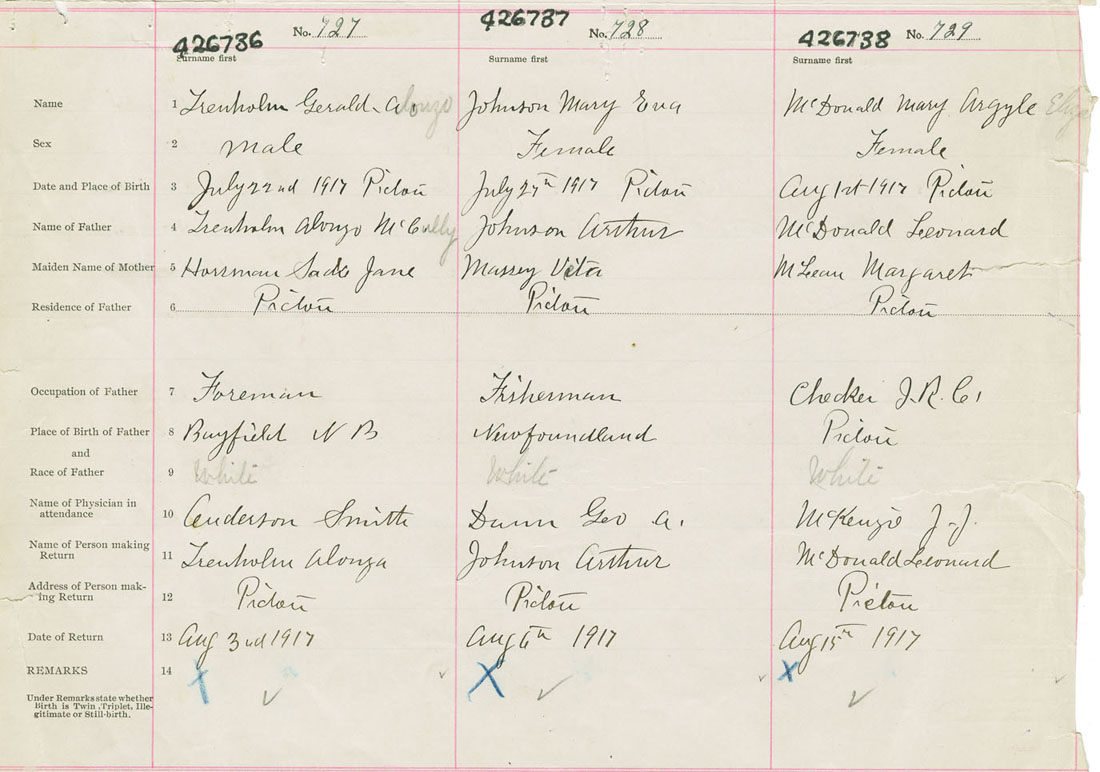 426786 No. 727 426787 No. 728 426738 No. 729
Surname first Surname first Surname first
Name 1 Trenholm Gerald Alonzo Johnson Mary Eva McDonald Mary Argyle
Sex 2 Male Female Female
Date and Place of Birth 3 July 22nd 1917 Pictou July 27th 1917 Pictou Aug 1st 1917 Pictou
Name of Father 4 Trenholm Alonzo McCully Johnson Arthur McDonald Leonard
Maiden Name of Mother 5 Horsman Sadie Jane Massey Vita McLean Margaret
Residence of Father 6 Pictou Pictou Pictou
Occupation of Father 7 Foreman Fisherman Checker I.R.C.
Place of Birth of Father 8 Bayfield N B Newfoundland Pictou
and
Race of Father 9 White White White
Name of Physician in
attendance 10 Anderson Smith Dunn Geo A. McKenzie J. J.
Name of Person making
Return 11 Trenholm Alonza Johnson Arthur McDonald Leonard
Address of Person mak-
ing Return 12 Pictou Pictou Pictou
Date of Return 13 Aug 3rd 1917 Aug 6th 1917 Aug 15th 1917
REMARKS 14 X X X
Under Remarks state whether
Birth is Twin, Triplet, Ille-
gitimate or Still-birth.